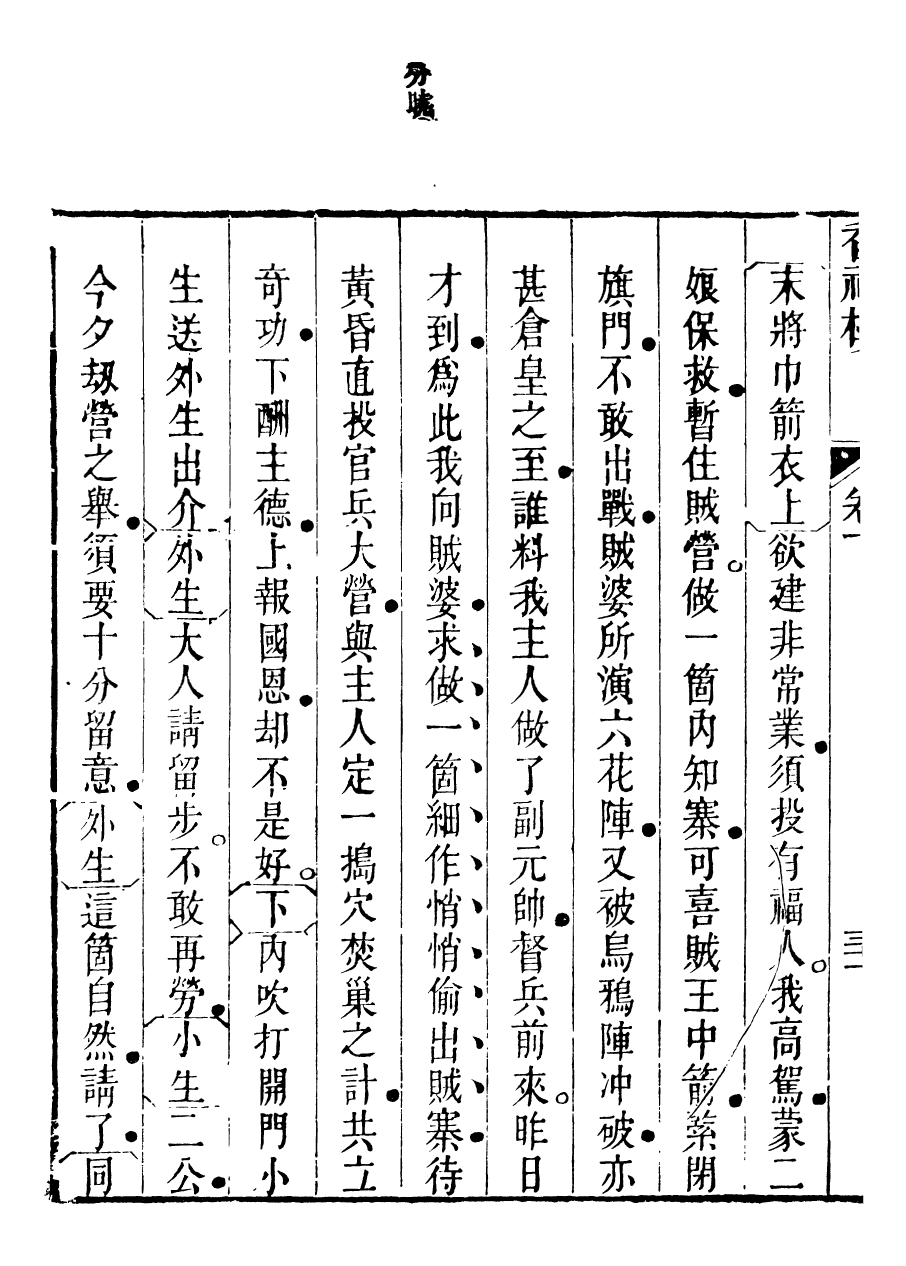 分曉
末將巾箭衣上欲建非常業須投有福人我高駕蒙二
娘保救暫住賊營做一箇內知寨可喜賊王中箭緊閉
旗門不敢出戰賊婆所演六花陣又被烏鴉陣冲破亦
甚倉皇之至誰料我主人做了副元帥督兵前來昨日
才到爲此我向賊婆求做一箇細作悄悄偷出賊寨待
黃昏直投官兵大營與主人定一搗穴焚巢之計共立
奇功下酬主德上報國恩却不是好下內吹打開門小
生送外生出介外生大人請留步不敢再勞小生二公
今夕刼營之舉須要十分留意外生這箇自然請了同